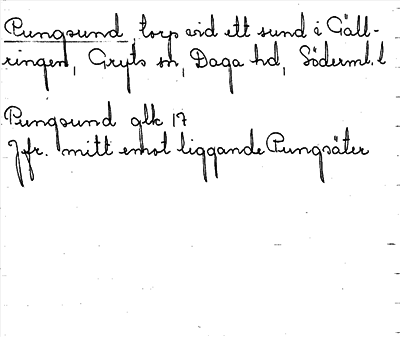 Pungsund, torp vid ett sund i Gäll-
ringen, Gryts sn, Daga hd, Söderml. l
Pungsund glk 17
Jfr. mitt emot liggande Pungsäter